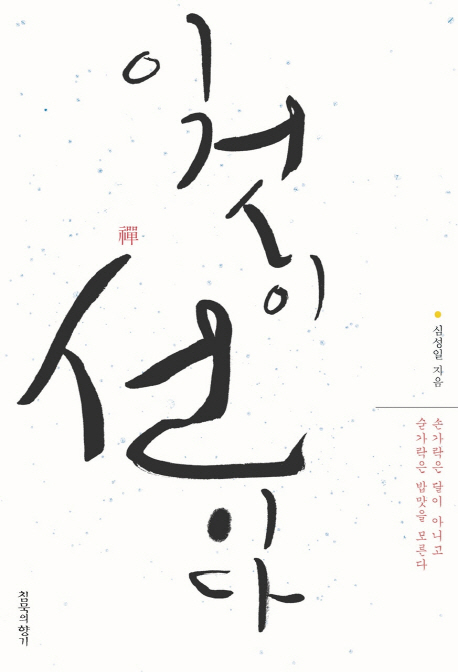 이것이
禪
선이다
심성일 지음
손가락은 달이 아니고
숟가락은 밥맛을 모른다
침묵의 향기